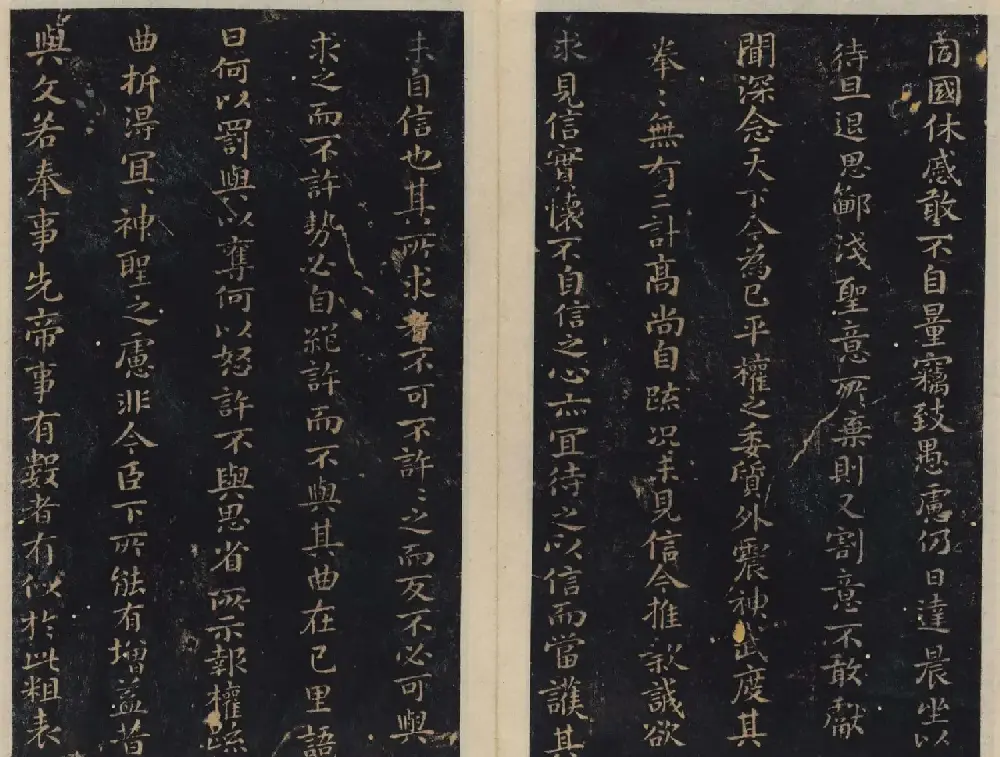 同國休慼敢不自量竊致愚慮仍日達晨坐以
待旦退思鄙淺聖意所棄則又割意不敢獻
聞深念天下今為已平權之委質外震神武度其
拳〻無有二計高尚自踈況未見信今推款誠欲
求見信實懷不自信之心亦冝待之以信而當護其
未自信也其所求者不可不許〻之而反不必可與
求之而不許勢必自絕許而不與其曲在己里語
曰何以罰與以奪何以怒許不與思省所示報權踈
曲折得冝神聖之慮非今臣下所能有增益昔
與文若奉事先帝事有數者有似於此粗表